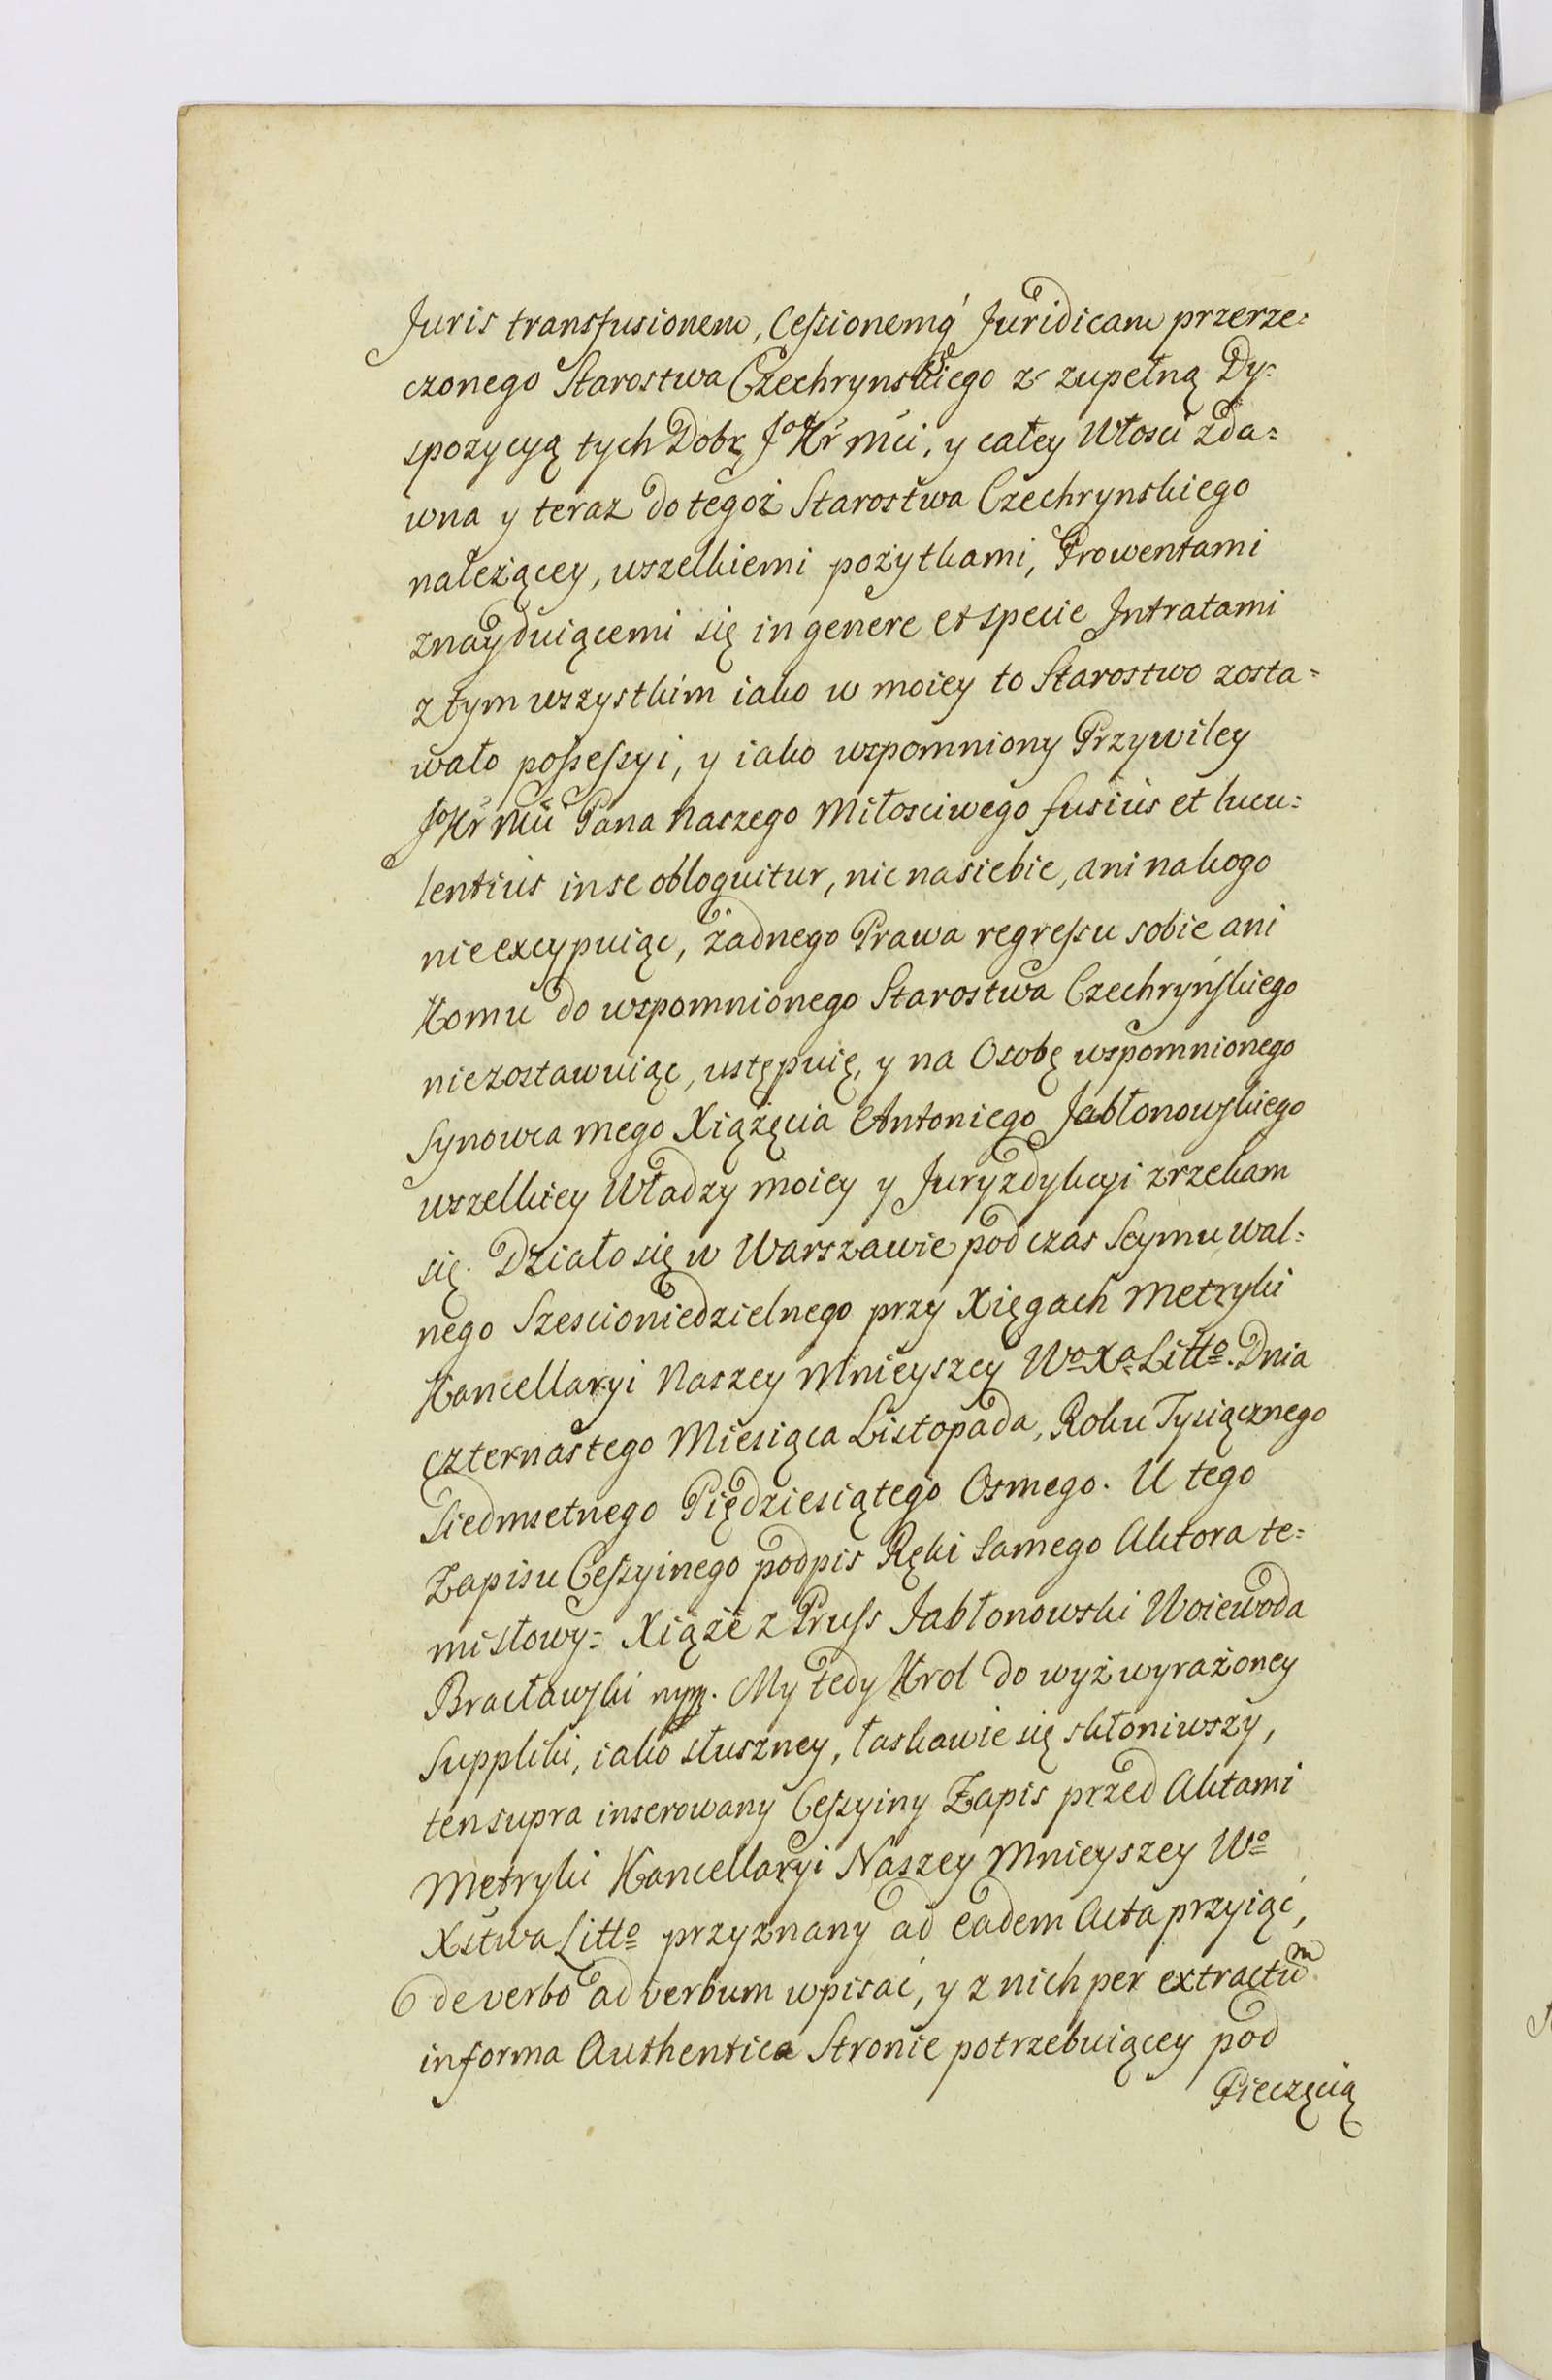 Juris transfusionem, Cessionemq́ Juridicam przerze=
czonego Starostwa Czechrynskiego z zupełną Dy=
spozycyą tych Dobr Jo Kr Mci, y całey Włosci zda=
wna y teraz do tegoż Starostwa Czechrynskiego
należącey, wszelkiemi pożytkami, Prowentami
znayduiącemi się in genere et specie Intratami
z tym wszystkim iako w moiey to Starostwo zosta=
wało possessyi, y iako wspomniony Przywiley
Jo Kr Mci Pana Naszego Miłosciwego fusius et lucu=
lentius in se obloquitur, nic na siebie, ani na kogo
nie excypuiąc, żadnego Prawa regressu sobie ani
Komu do wspomnionego Starostwa Czechryńskiego
niezostawuiąc, ustępuię, y na Osobę wspomnionego
Synowca mego Xiążęcia Antoniego Jabłonowskiego
wszelkiey Władzy moiey y Juryzdykcyi zrzekam
się. Działo się w Warszawie podczas Seymu Wal=
nego Szescioniedzielnego przy Xięgach Metryki
Kancellaryi Naszey Mnieyszey Wo Xa Litto. Dnia
czternastego Miesiąca Listopada, Roku Tysiącznego
Siedmsetnego Pięddziesiątego Osmego. U tego
Zapisu Cessyinego podpis Ręki Samego Aktora te=
mi słowy= Xiąże z Pruss Jabłonowski Woiewoda
Bracławski mpp. My tedy Krol do wyż wyrażoney
Suppliki, iako słuszney, łaskawie się skłoniwszy,
ten supra inserowany Cessyiny Zapis przed Aktami
Metryki Kancellaryi Naszey Mnieyszey Wo
Xstwa Litto przyznany ad eadem Acta przyiąć,
de verbo ad verbum wpisać, y z nich per extractum
in forma Authentica Stronie potrzebuiącey pod
Pieczęcią